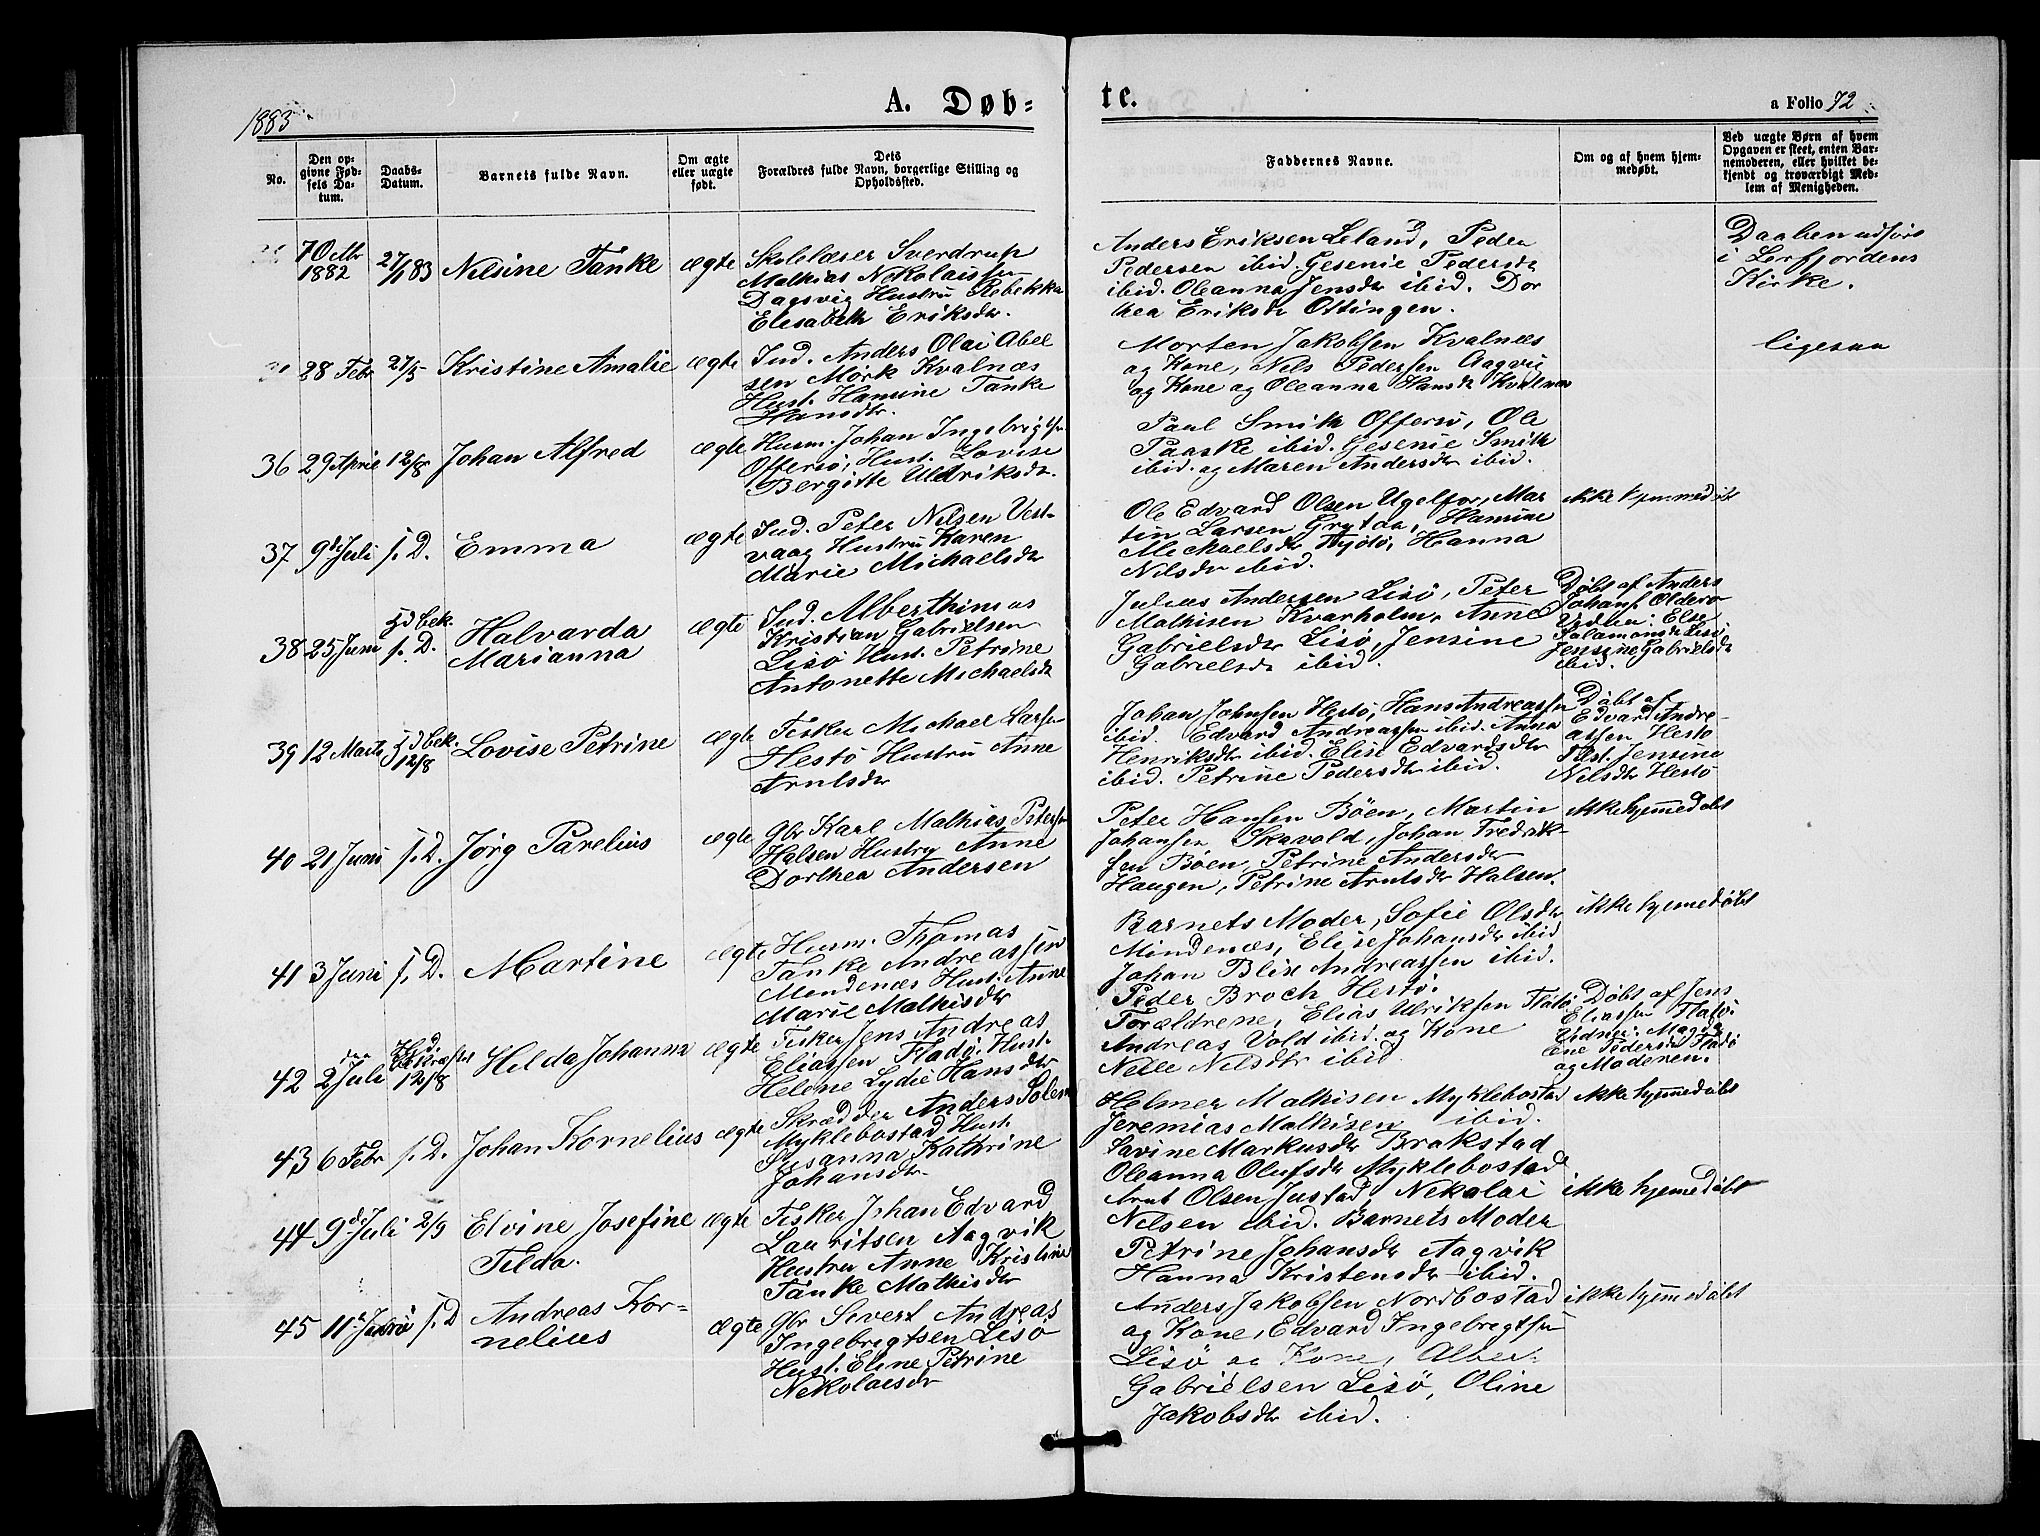 1883
A. Døb-
te.
a Folio 72
No.
Den op-
givne Fød-
sels Da-
tum.
Daabs-
Datum.
Barnets fulde Navn.
Om ægte
eller uægte
født.
Dets
Forældres fulde Navn, borgerlige Stilling og
Opholdssted.
Faddernes Navne.
Om og af hvem hjem-
medøbt.
Ved uægte Børn af hvem
Opgaven er skeet, enten Bar-
nemoderen, eller hvilket be-
kjendt og troværdigt Med-
lem af Menigheden.
7 Octbr
1882
27/1 83
Nilsine Tanke
ægte
Skolelærer Sverdrup
Mathias Nikolaissen
Dagsvig Hustru Rebekka
Elisabeth Eriksdr.
Anders Eriksen Leland, Peder
Pedersen ibid. Gesenie Pedersdr
ibid. Oleanna Jensdr ibid. Dor
thea Eriksdr Ottingen.
Daaben udført
i Leirfjordens
Kirke.
28 Febr
27/5
Kristine Amalie
ægte
Ind. Anders Olai Abel
sen Mørk Kvalnæs
Hust. Hansine Tanke
Hansdtr.
Morten Jakobsen Kvalnæs
og Kone, Nils Pedersen Aagvig
og Kone og Oleanna Hansdr Kvalnæs
ligesaa
36
29 April
12/8
Johan Alfred
ægte
Husm. Johan Ingebrigtsn
Offersø, Hust. Lovise
Bergitte Uldriksdr.
Paul Smith Offersø, Ole
Paaske ibid. Gesenie Smith
ibid. og Maren Andersdr ibid.
37
9de Juli
s. D.
Emma
ægte
Ind. Peter Nilsen Vest-
vaag Hustru Karen
Marie Michaelsdr
Ole Edvard Olsen Ugelfor, Mar
tin Larsen Grytaa, Hansine
Michaelsdr Tjøtø, Hanna
Nilsdr ibid.
ikke hjemmedøbt
38
25 Juni
Id bek.
s. D.
Halvarda
Marianna
ægte
Ind. Alberthinius
Kristian Gabrielsen
Lisø Hust. Petrine
Antonette Michaelsdr
Julius Andersen Lisø, Peter
Mathisen Kvarholm, Anne
Gabrielsdr Lisø, Jensine
Gabrielsdr ibid.
Døbt af Anders
Johans. Oldero
Vidner: Else
Salamonsdr Lisø
Jensine Gabrielsdr
ibid.
39
12 Marts
Id bek.
12/8
Lovise Petrine
ægte
Fisker Michael Larsen
Hestø Hustru Anne
Arntsdr
Johan Johnsen Hestø, Hans Andreassen
ibid. Edvard Andreassen ibid. Anna
Henriksdr ibid. Elise Edvardsdr
ibid. Petrine Pedersdr ibid.
Døbt af
Edvard Andre-
assen Hestø
Test. Jensine
Nilsdr Hestø
40
21 Juni
s. D.
Jørg Parelius
ægte
Gbr Karl Mathias Petersn
Halsen Hustru Anne
Dorthea Andersen
Peter Hansen Bøen, Martin
Johansen Skavold, Johan Fredrik-
sen Bøen, Petrine Andersdr
Haugen, Petrine Arntsdr Halsen.
ikke hjemmedøbt
41
3 Juni
s. D.
Martine
ægte
Husm. Thomas
Tanke Andreassen
Mindenæs Hust. Anne
Marie Mathisdr
Barnets Moder, Sofie Olsdr
Mindenæs, Elise Johansdr ibid
Johan Blix Andreassen ibid.
Peder Broch Hestø.
ikke hjemmedøbt
42
2 Juli
12/8
Hilda Johanna
ægte
Fisker Jens Andreas
Eliassen Fladø, Hust.
Helene Lydie Hansdr
Forældrene, Elias Ulriksen Flatø
Andreas Vold ibid. og Kone
Nelle Nilsdtr ibid
Døbt af Jens
Eliassen Flatø.
Vidner: Magda
Ene Pedersn Flatø
og Moderen.
43
6 Febr
s. D.
Johan Kornelius
ægte
Skrædder Anders Solem
Myklebostad Hust.
Susanna Kathrine
Johansdr
Helmer Mathisen Myklebostad
Jeremias Mathisen ibid.
Lavine Markusdr Brakstad
Oleanna Olufsdr Myklebostad
ikke hjemmedøbt
44
9de Juli
2/9
Elvine Josefine
Tilda.
ægte
Fisker Johan Edvard
Lauritsen Aagvik
Hustru Anne Kristine
Tanke Mathisdr
Arnt Olsen Justad, Nikolai
Nilsen ibid. Barnets Moder
Petrine Johansdr Aagvik
Hanna Kristensdr ibid.
ikke hjemmedøbt
45
11te
s. D
Andreas Kor-
nelius
ægte
Gbr Sivert Andreas
Ingebregtsen Lisø
Hust. Eline Petrine
Nikolaisdr
Anders Jakobsen Nordbostad
og Kone, Edvard Ingebregtsen
Lisø og Kone, Alber.
Gabrielsen Lisø, Oline
Jakobsdr ibid.
ikke hjemmedøbt